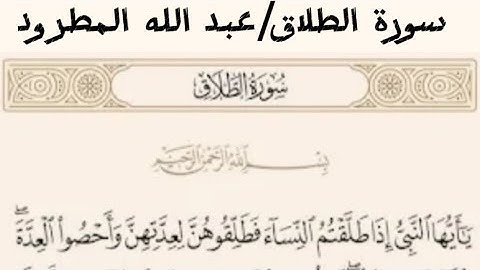 سورة الطلاق/عبد الله المطرود
سُورَةُ الطَّلَاقِ
بِسْمِ اللَّهِ الرَّحْمَٰنِ الرَّحِيمِ
يَٰٓأَيُّهَا ٱلنَّبِىُّ إِذَا طَلَّقْتُمُ ٱلنِّسَآءَ فَطَلِّقُوهُنَّ لِعِدَّتِهِنَّ وَأَحْصُوا۟ ٱلْعِدَّةَ ۖ